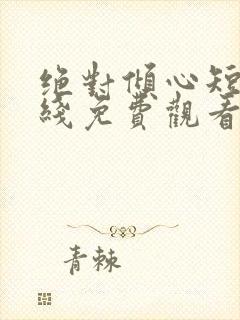 绝對傾心短
綫免費觀看
青棘